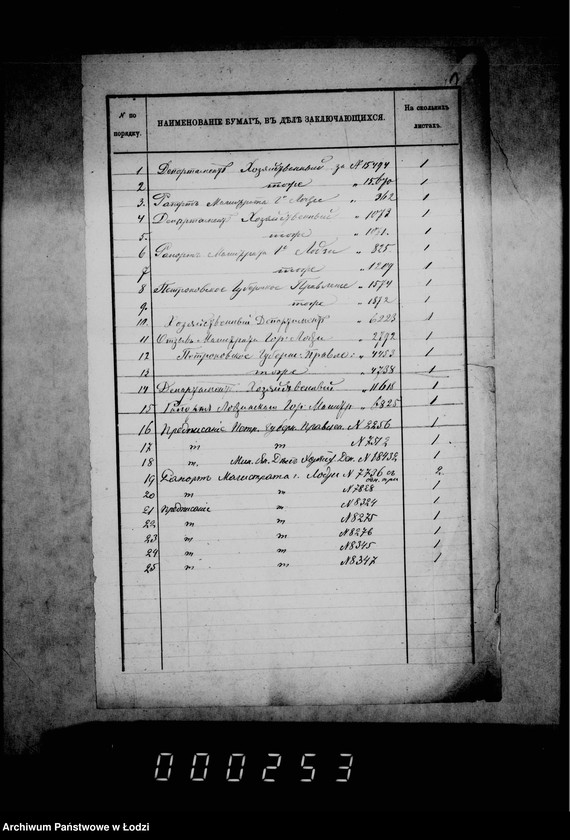 N по порядку. НАИМЕНОВАНІЕ БУМАГЪ, ВЪ ДѢЛѢ ЗАКЛЮЧАЮЩИХСЯ. На сколькихъ листахъ.
1 Департаментъ Хозяйственный за N 15494 1
2 тоже " 1
3. Рапортъ Магистрата г. Лодзи " 362 1
4 Департаментъ Хозяйственный " 1073 1
5. тоже " 1
6 Рапортъ Магистрата г. Лодзи " 825 1
7 тоже " 1209 1
8 Петроковское Губернское Правленіе " 1574 1
9. тоже " 1572 1
10. Хозяйственный Департаментъ " 6223 1
11 Отзывъ Магистрата Гор. Лодзи " 2792 1
12 Петроковское Губерн. Правле: " 4453 1
13 тоже " 4738 1
14 Департаментъ Хозяйственный " 11618 1
15 Рапортъ Лодзинскаго Гор. Магистр " 6825 1
16 Предписаніе Петр. Губерн. Правлен. N 2256 1
17 m m N 7512 1
18 m. Мин. Вн. Дѣлъ Хозяйст. Деп. N 18432 1
19 Рапортъ Магистрата г. Лодзи N 7736 съ 2
20 m m N 7828 1
21 Предписаніе N 8324 1
22 m m N 8275 1
23 m m N 8276 1
24 m m N 8345 1
25 m m N 8347 1
000253
Archiwum Państwowe w Łodzi